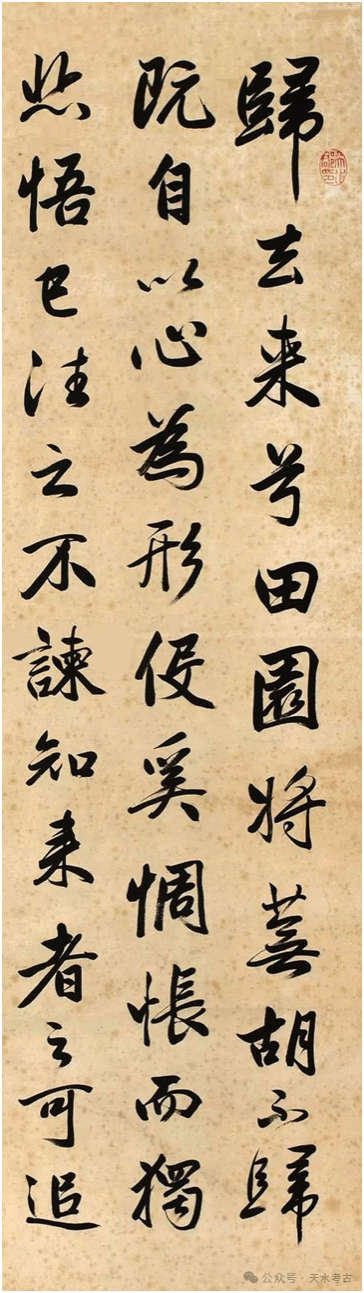 歸去来兮田園將蕪胡不歸
既自以心為形役奚惆悵而獨
悲悟已往之不諫知来者之可追
公众号 · 天水考古